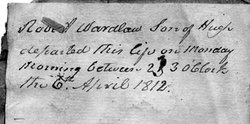 Robert Wardlaw Son of Hugh
departed this life on Monday
Morning between 2 & 3 oClock
the 6th April 1812.